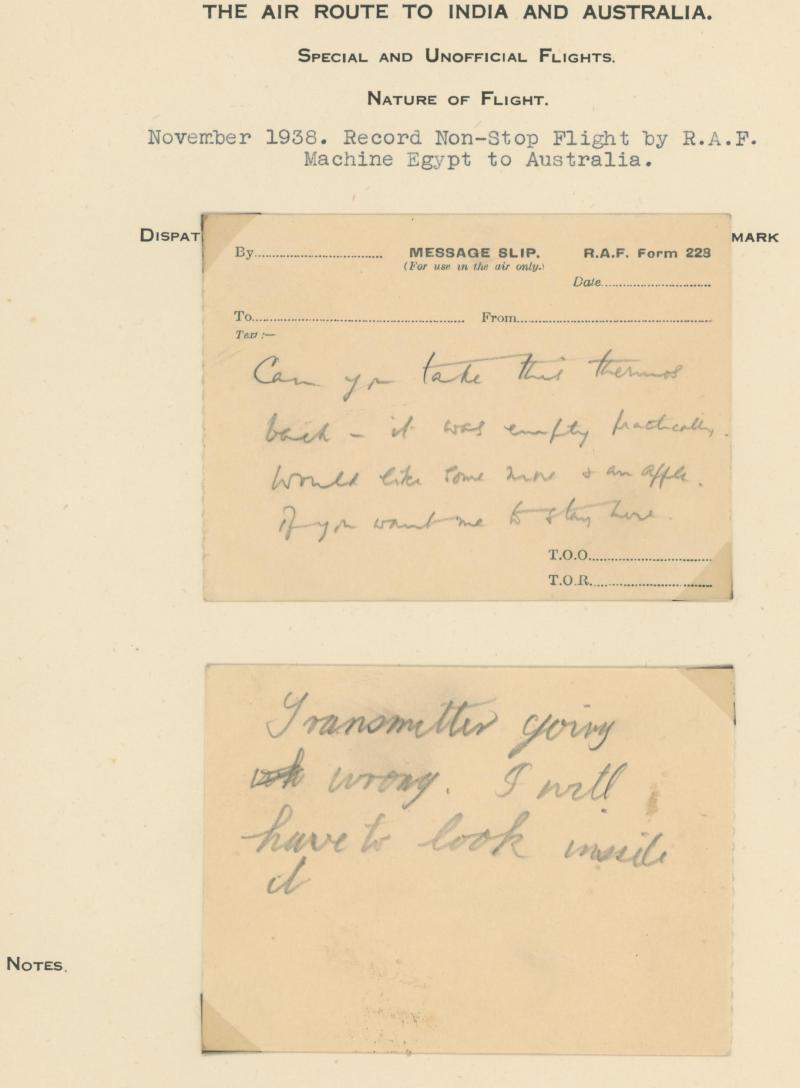 THE AIR ROUTE TO INDIA AND AUSTRALIA.
SPECIAL AND UNOFFICIAL FLIGHTS.
NATURE OF FLIGHT.
November 1938. Record Non-Stop Flight by R.A.F.
Machine Egypt to Australia.
DISPAT MARK
By MESSAGE SLIP. R.A.F. Form 223
(For use in the air only.)
Date
To From
Text :—
Can you take this thermos
back - it was empty practically.
Would like some more & an apple.
If you want me to stay here.
T.O.O.
T.O.R.
Transmitter going
wrong. I will
have to look inside
it
NOTES.